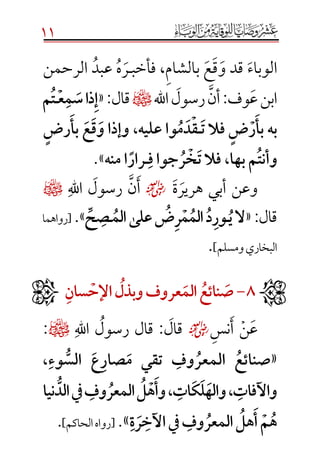 عَشْرُ وَصَايَا لِلْوِقَايَةِ مِنَ الْوَبَاءِ ١١
الوباءَ قد وَقَعَ بالشامِ، فأخبـرَهُ عبدُ الرحمن
ابن عَوف: أنَّ رسولَ الله ﷺ قال: «إِذا سَمِعْـتُـم
به بأَرْضٍ فلا تَـقْـدَمُوا عليه، وإذا وَقَعَ بأَرضٍ
وأنتُم بها، فلا تَخْرُجوا فِـرارًا منه».
وعن أبي هريرَةَ ﵁ أَنَّ رسولَ اللهِ ﷺ
قال: «لا يُـورِدُ المُمْرِضُ علىٰ المُـصِـحِّ». [رواهما
البخاري ومسلم].
٨- صَنائعُ المَعروف وبذلُ الإحْسانِ
عَنْ أَنسٍ ﵁ قالَ: قال رسولُ اللهِ ﷺ:
«صنائعُ المعرُوفِ تقي مَصارِعَ السُّوءِ،
والآفاتِ، والهَلَكَاتِ، وأَهْلُ المعرُوفِ في الدُّنيا
هُمْ أَهلُ المعرُوفِ في الآخِرَةِ». [رواه الحاكم].